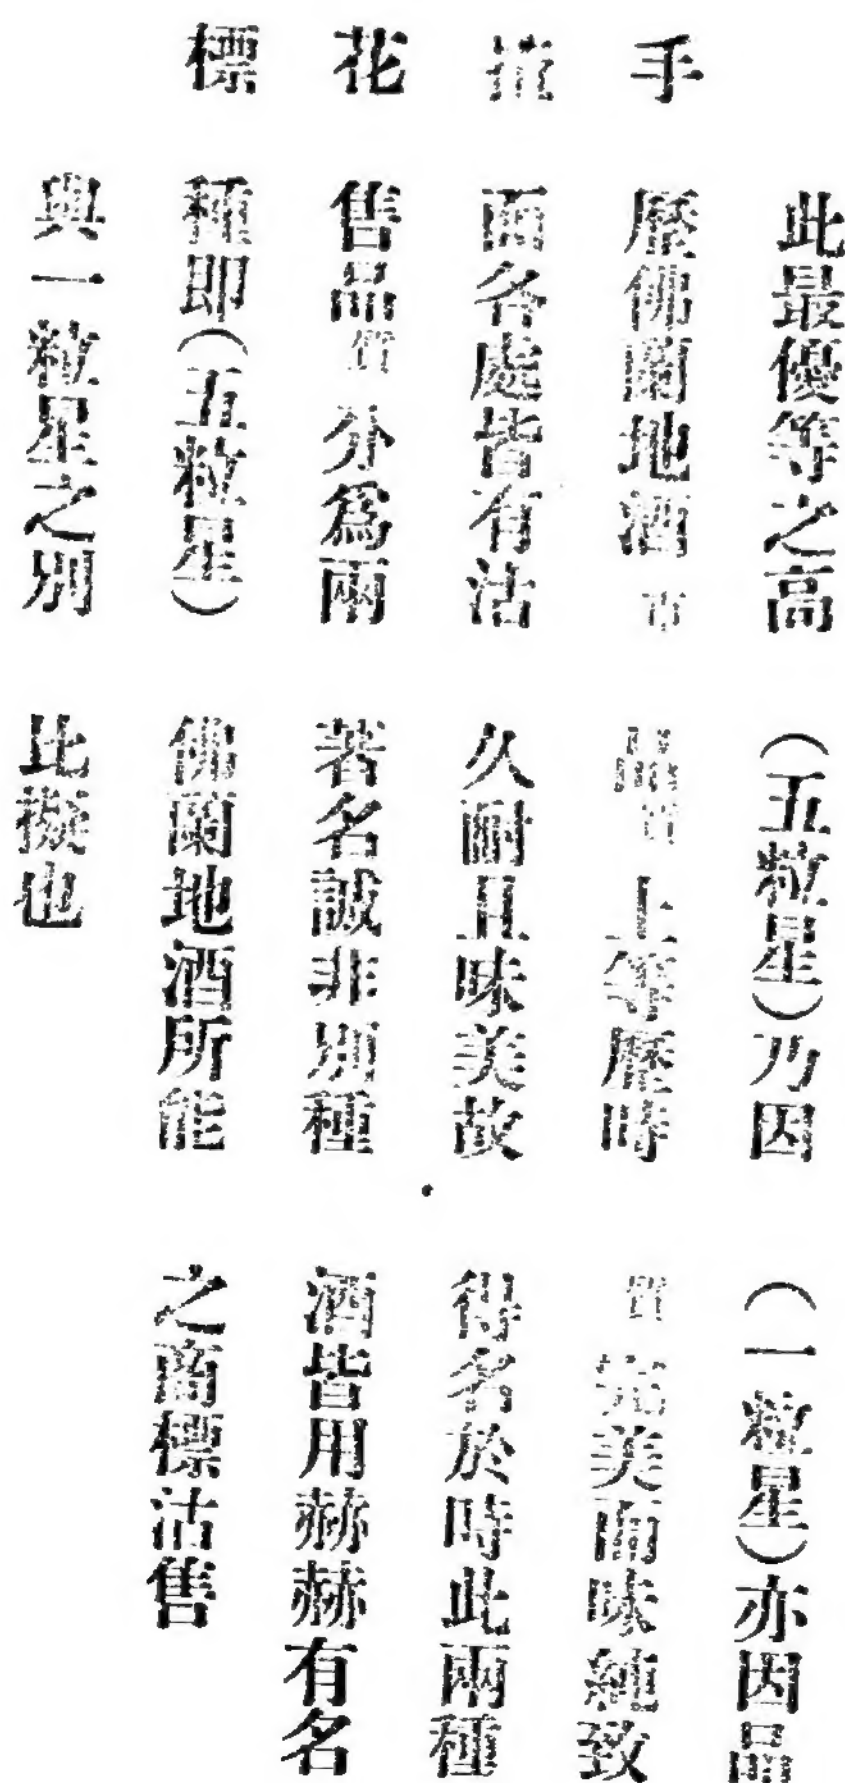 手揸花標
此最優等之高
歷佛蘭地酒市
面各處皆有沽
售品質分爲兩
種即(五粒星)
與一粒星之別
(五粒星)乃因
品質上等歷時
久耐且味美故
著名誠非別種
佛蘭地酒所能
比擬也
(一粒星)亦因品
質完美而味純致
得名於時此兩種
酒皆用赫赫有名
之商標沽售